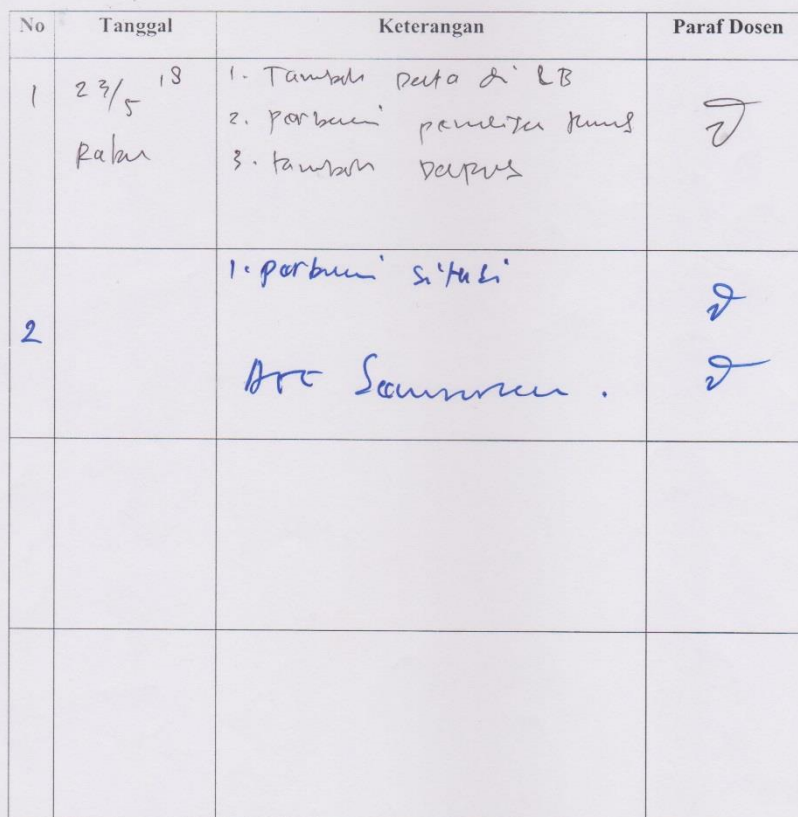 No Tanggal Keterangan Paraf Dosen
1 23/5 18 1. Tambah Data di LB
2. perbaiki
Rabu 3. tambah Dapus
2 1. perbaiki sitasi
Acc